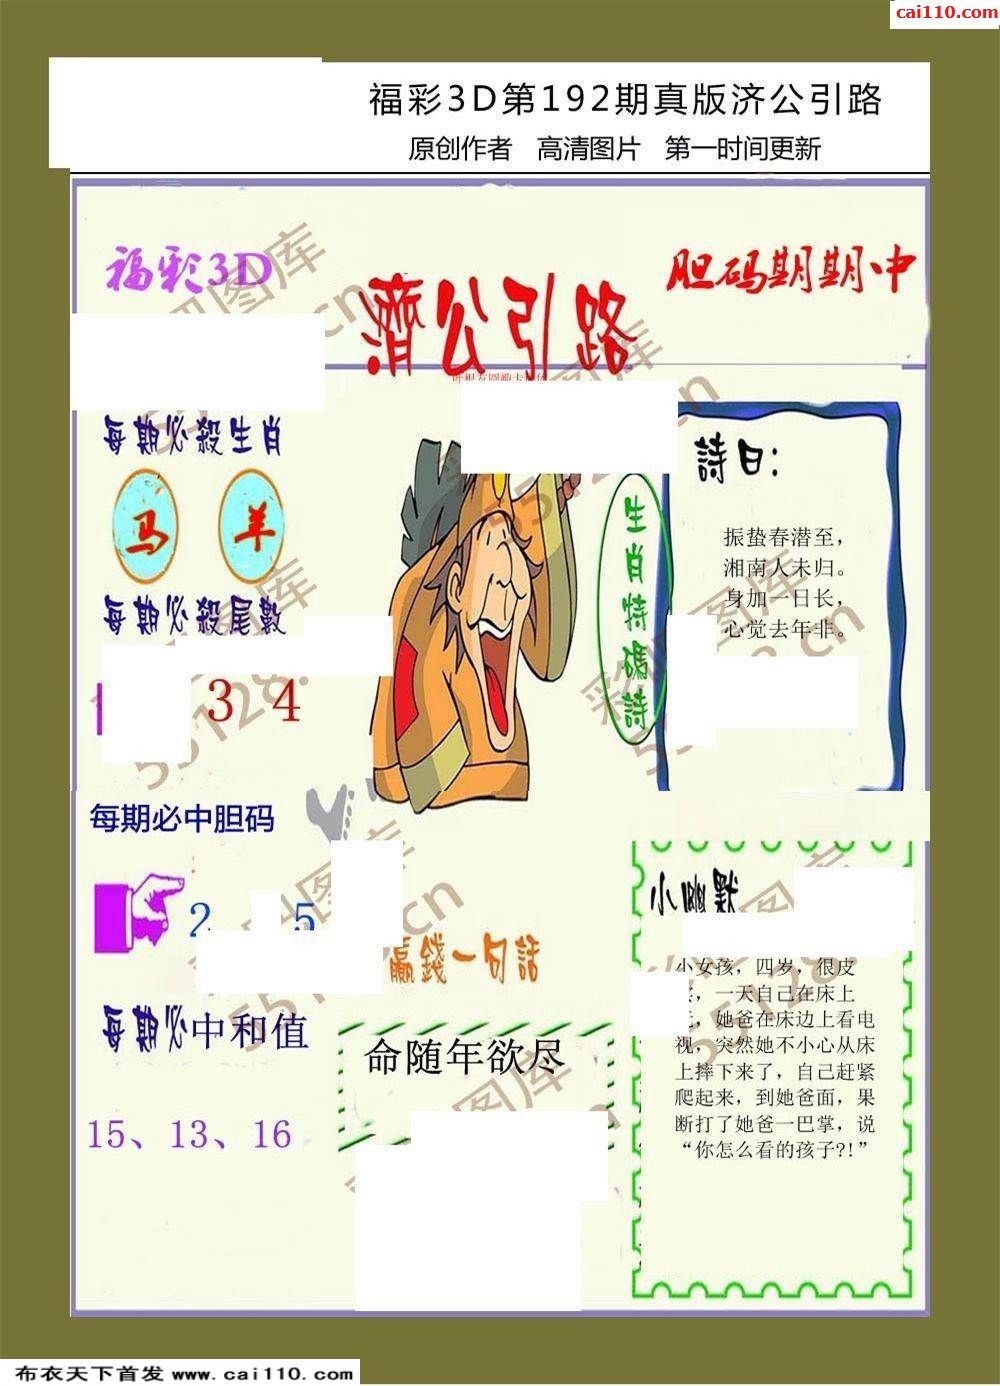 cai110.com
福彩3D第192期真版济公引路
原创作者 高清图片 第一时间更新
福彩3D
濟公引路
胆码期期中
每期必殺生肖
马 羊
每期必殺尾數
3 4
生肖特碼詩
詩曰:
振蛰春潜至，
湘南人未归。
身加一日长，
心觉去年非。
每期必中胆码
2 5
每期必中和值
15、13、16
贏錢一句話
命随年欲尽
小幽默
小女孩，四岁，很皮
，一天自己在床上
，她爸在床边上看电
视，突然她不小心从床
上摔下来了，自己赶紧
爬起来，到她爸面，果
断打了她爸一巴掌，说
“你怎么看的孩子?!”
彩吧图库
55128.cn
布衣天下首发 www.cai110.com